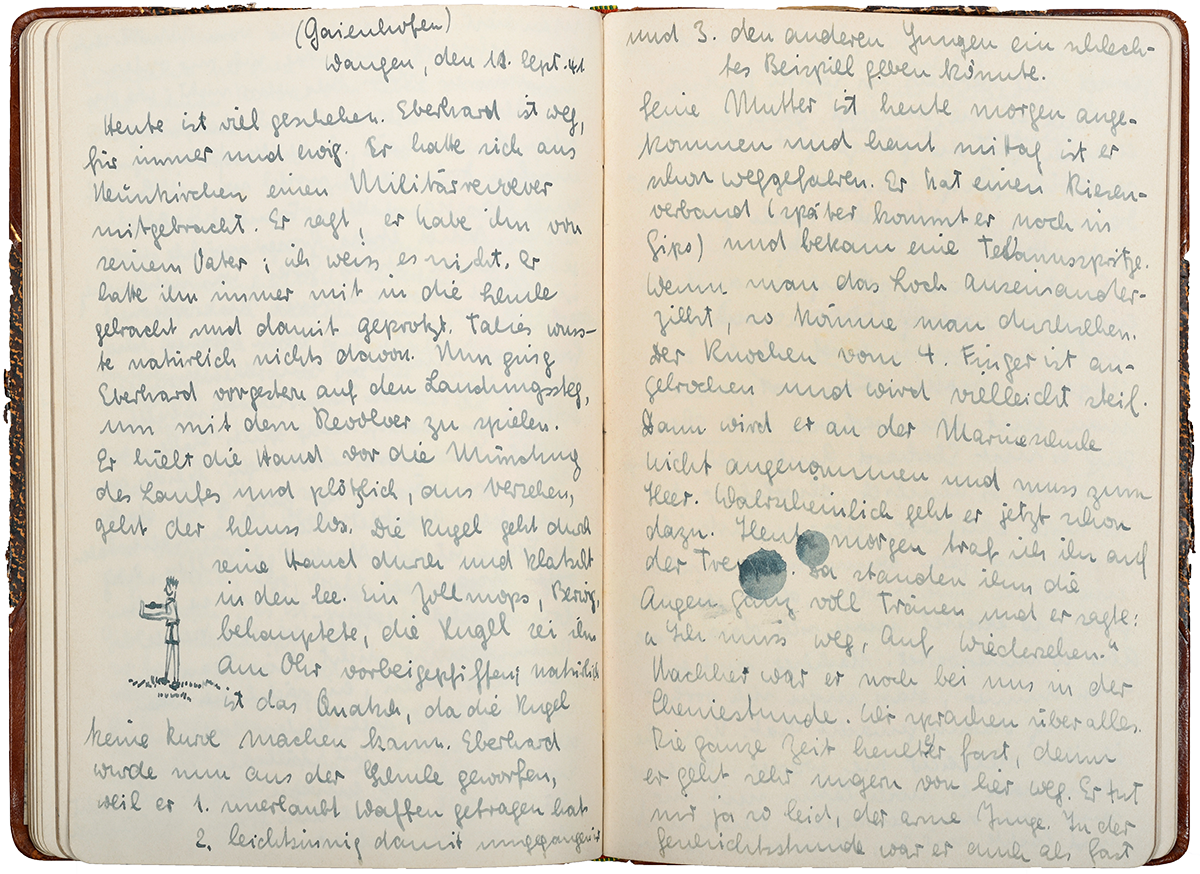 (Gaienhofen)
Wangen, den 18. Sept. 41
Heute ist viel geschehen. Eberhard ist weg,
für immer und ewig. Er hatte sich aus
Neunkirchen einen Militärrevolver
mitgebracht. Er sagt, er habe ihn von
seinem Vater; ich weiss es nicht. Er
hatte ihn immer mit in die Schule
gebracht und damit geprotzt. Talies wuss-
te natürlich nichts davon. Nun ging
Eberhard vorgestern auf den Landungssteg,
um mit dem Revolver zu spielen.
Er hielt die Hand vor die Mündung
des Laufes und plötzlich, aus Versehen,
geht der Schuss los. Die Kugel geht durch
seine Hand durch und klatscht
in den See. Ein Zollmops,
behauptete, die Kugel sei ihm
am Ohr vorbeigepfiffen; natürlich
ist das Quatsch, da die Kugel
keine Kurve machen kann. Eberhard
wurde nun aus der Schule geworfen,
weil er 1. unerlaubt Waffen getragen hat
2. leichtsinnig damit umgegangen ist
und 3. den anderen Jungen ein schlech-
tes Beispiel geben könnte.
Seine Mutter ist heute morgen ange-
kommen und heut mittag ist er
schon weggefahren. Er hat einen Riesen-
verband (später kommt er noch in
Gips) und bekam eine Tetanusspritze.
Wenn man das Loch auseinander-
zieht, so könne man durchsehen.
Der Knochen vom 4. Finger ist an-
gebrochen und wird vielleicht steif.
Dann wird er an der Marineschule
nicht angenommen und muss zum
Heer. Wahrscheinlich geht er jetzt schon
dazu. Heute morgen traf ich ihn auf
der Treppe. Da standen ihm die
Augen ganz voll Tränen und er sagte:
„Ich muss weg, auf Wiedersehen."
Nachher war er noch bei uns in der
Chemiestunde. Wir sprachen über alles.
Die ganze Zeit heulte er fast, denn
er geht sehr ungern von hier weg. Er tut
mir ja so leid, der arme Junge. In der
Geschichtsstunde war er auch als Gast